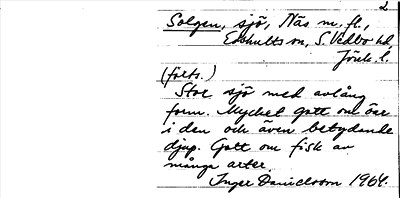 2
Solgen, sjö, Näs m. fl.,
Edshults sn, S. Vedbo hd,
Jönk. l.
(forts.)
Stor sjö med avlång
form. Mycket gott om öar
i den och även betydande
djup. Gott om fisk av
många arter.
Inger Danielsson 1964.